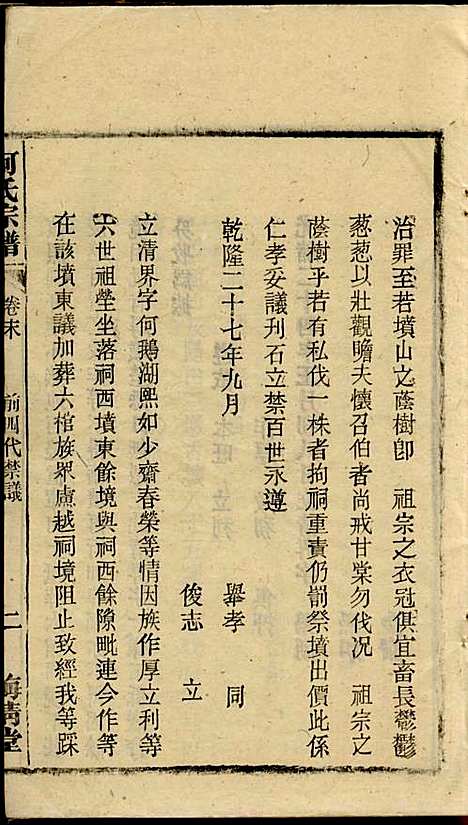 治罪至若墳山之蔭樹卽　祖宗之衣冠俱宜畜長鬱鬱
葱葱以壯觀瞻夫懷召伯者尚戒甘棠勿伐况　祖宗之
蔭樹乎若有私伐一株者拘祠重責仍罰祭墳出價此係
仁孝妥議刋石立禁百世永遵
乾隆二十七年九月　舉孝　同
俊志　立
立清界字何鵝湖熙如少齋春榮等情因族作厚立利等
六世祖塋坐落祠西墳東餘境與祠西餘隙毗連今作等
在該墳東議加葬六棺族衆慮越祠境阻止致經我等踩
何氏宗譜　卷末　前四代禁議　二